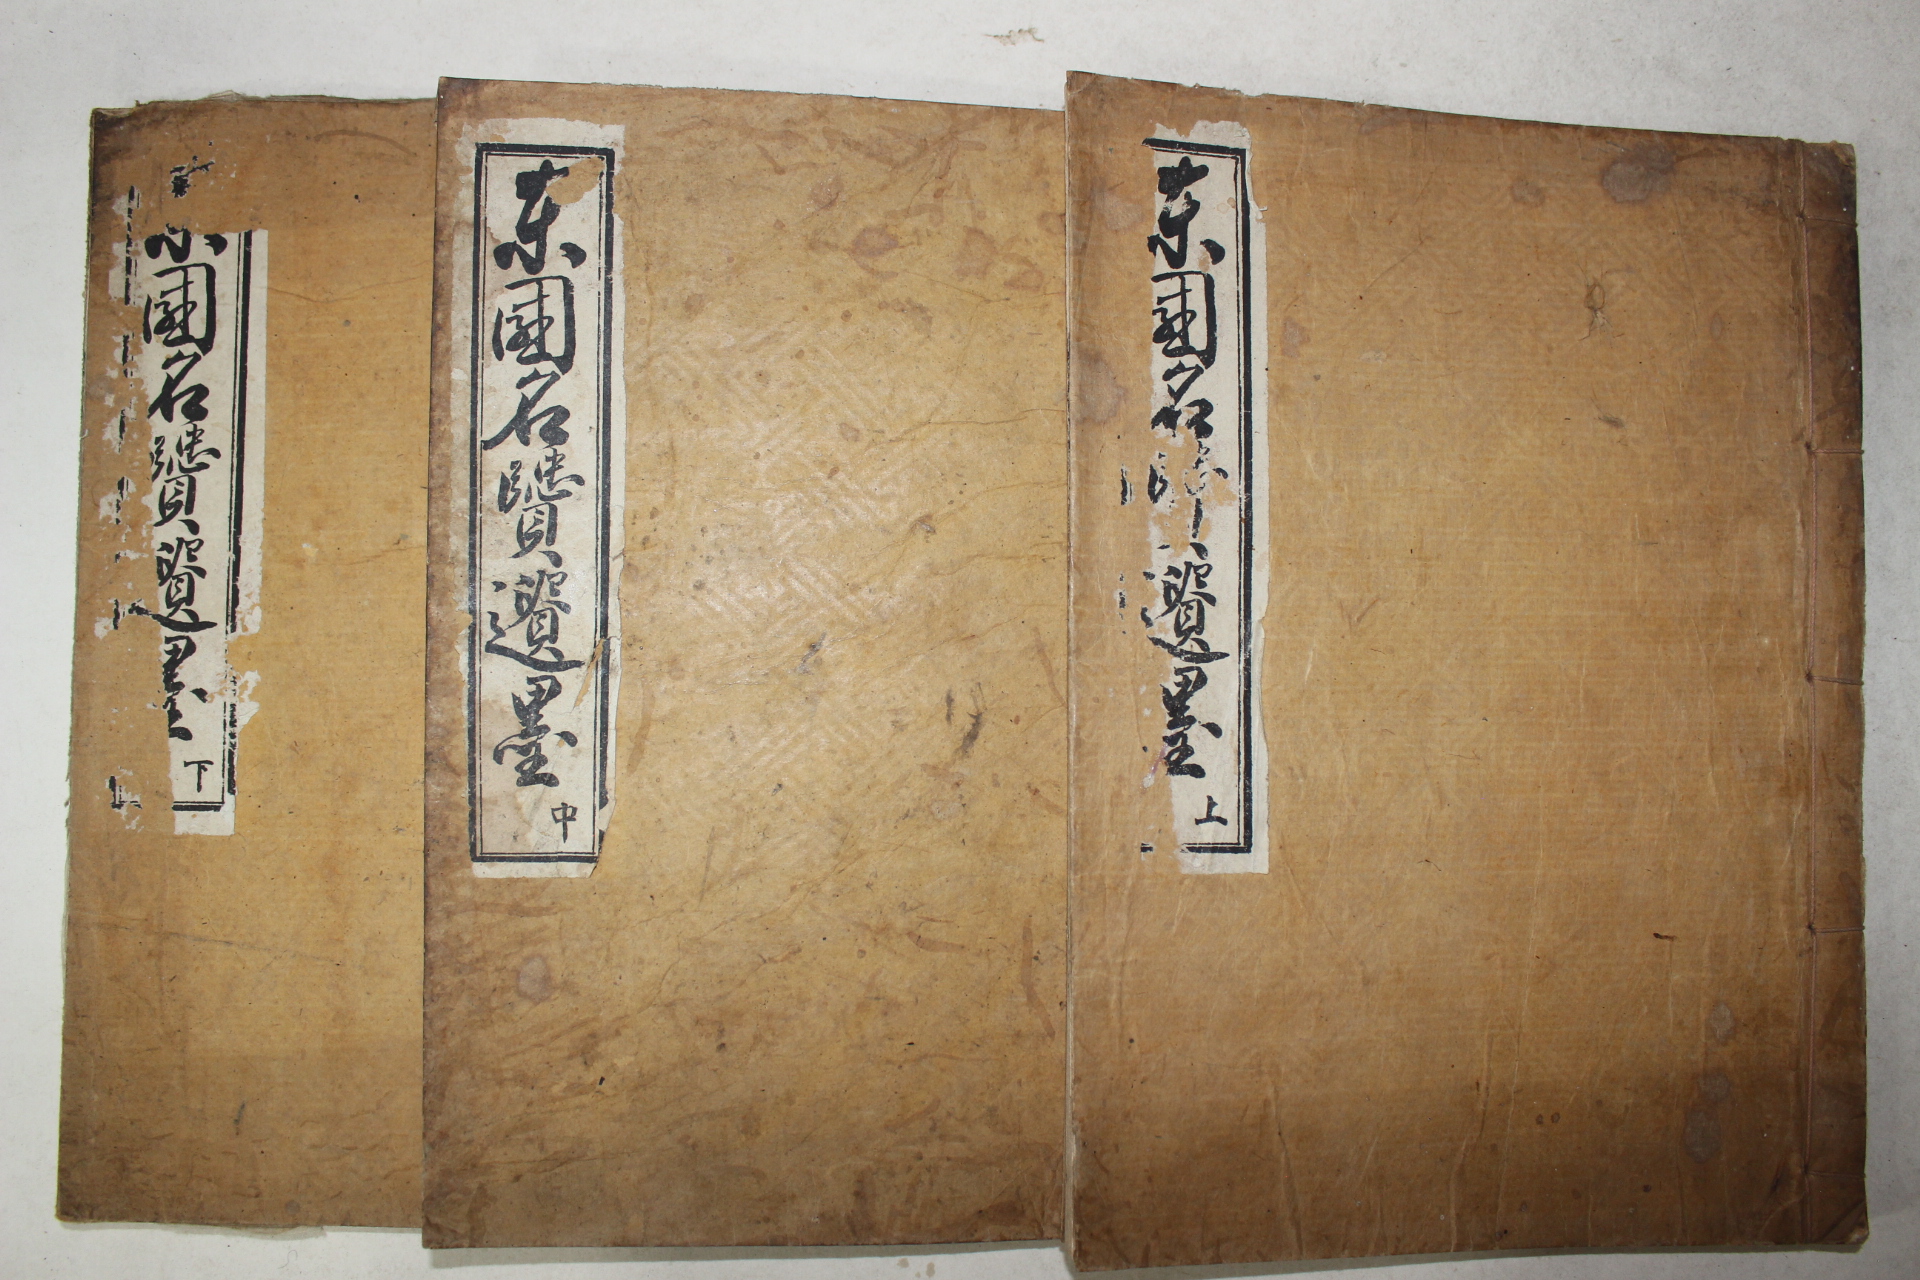 東國名賢遺墨 上
東國名賢遺墨 中
東國名賢遺墨 下